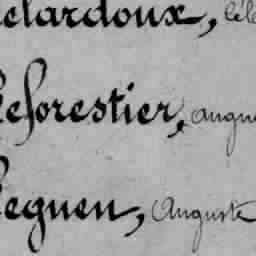 elardoux, Cél
Leforestier, augu
Leguen, Auguste